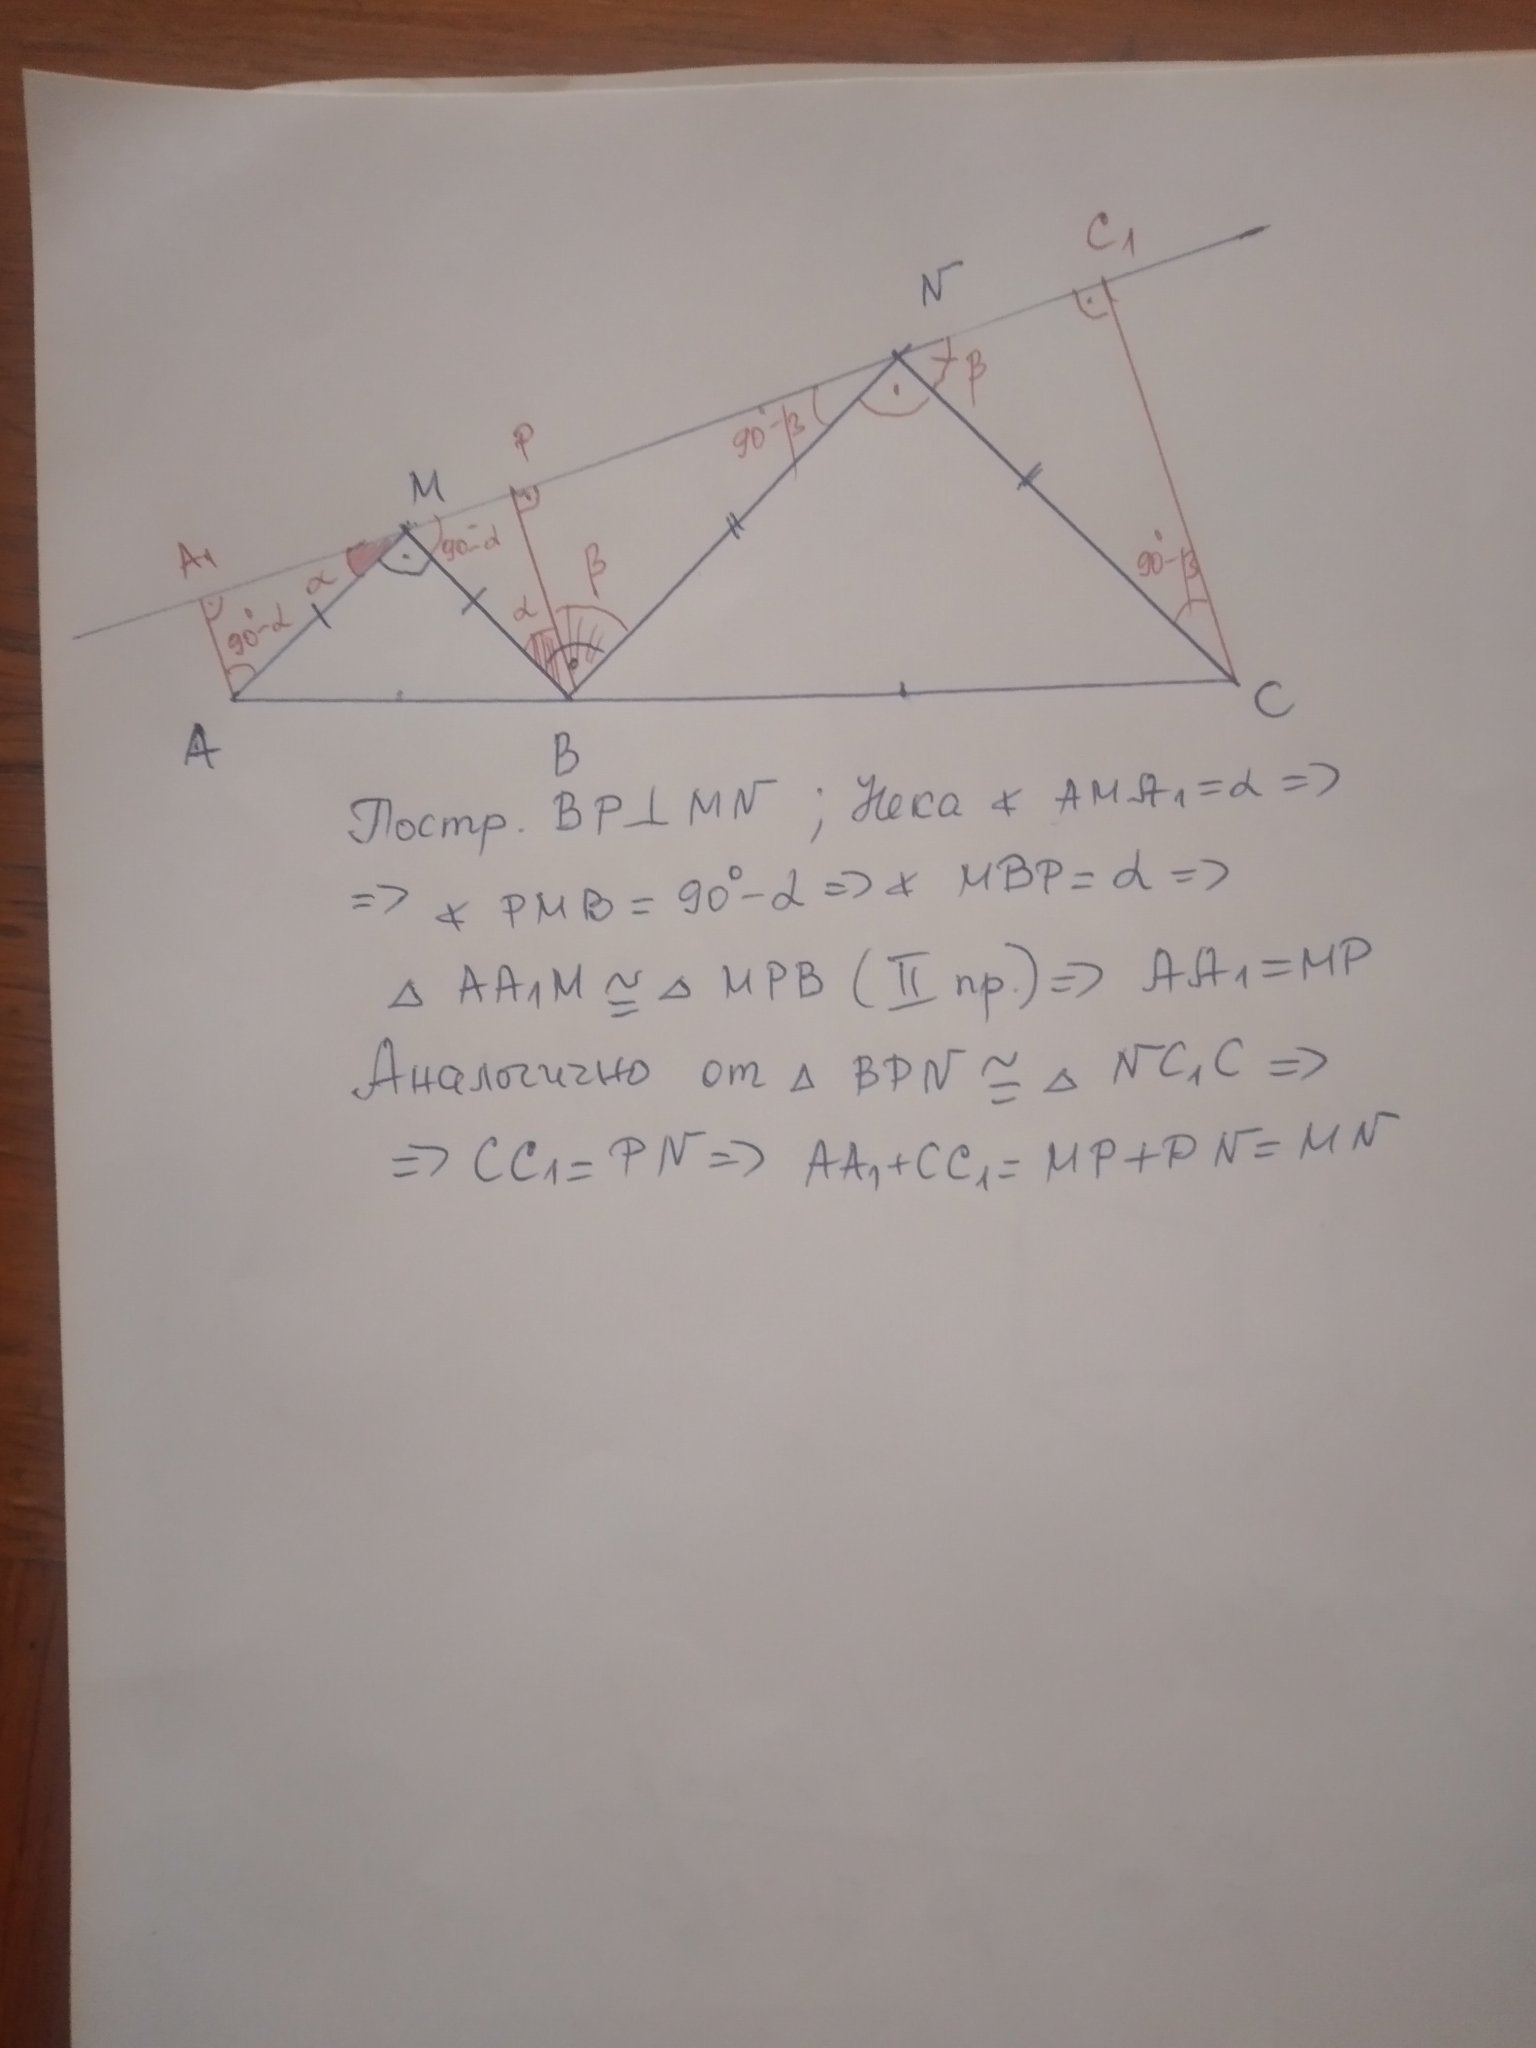 C₁
N
β
P
90°-β
M
A₁
α
90°-α
90°-α
α
β
90°-β
A
B
C
Постр. BP⊥MN ; Нека ∢ AMA₁=α =>
=> ∢ PMB = 90°-α => ∢ MBP = α =>
△ AA₁M ≅ △ MPB (II пр.) => AA₁=MP
Аналогично от △ BPN ≅ △ NC₁C =>
=> CC₁= PN => AA₁+CC₁= MP+PN= MN